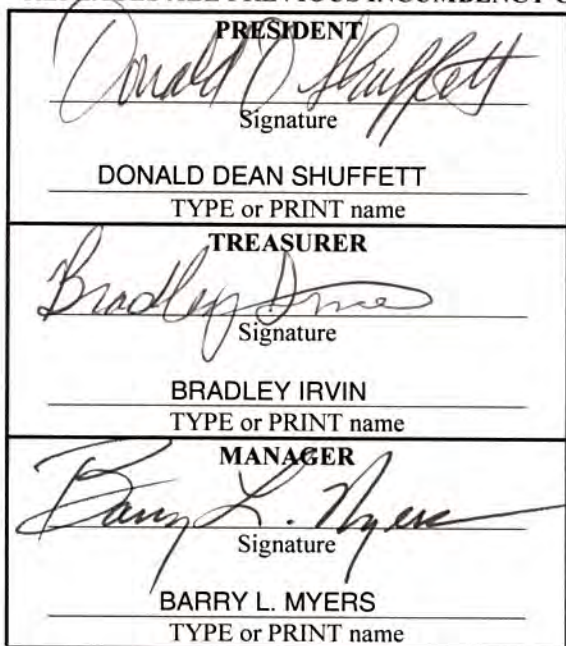 PRESIDENT
Donald D Shuffett
Signature
DONALD DEAN SHUFFETT
TYPE or PRINT name
TREASURER
Bradley Irvin
Signature
BRADLEY IRVIN
TYPE or PRINT name
MANAGER
Barry L. Myers
Signature
BARRY L. MYERS
TYPE or PRINT name